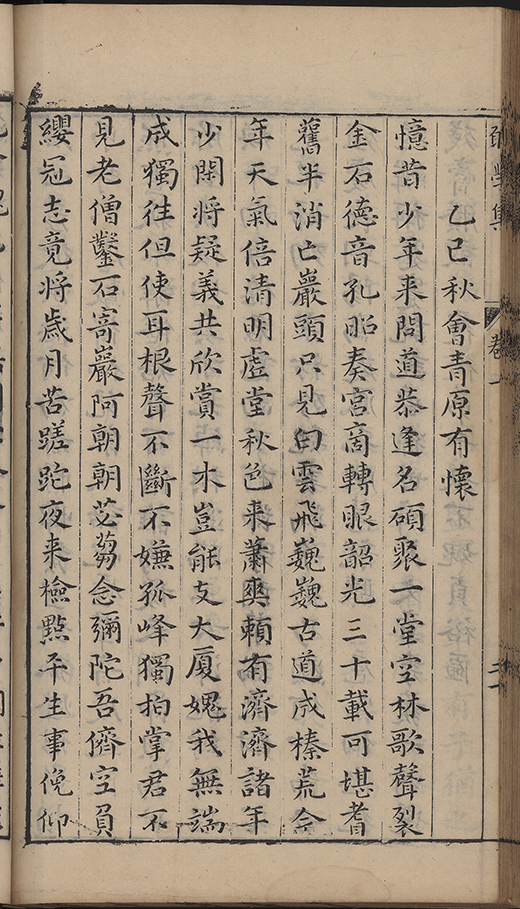 乙巳秋會青原有懷
憶昔少年来問道恭逢名碩聚一堂空林歌聲裂
金石德音孔昭奏宮商轉眼韶光三十載可堪耆
舊半消亡巖頭只見白雲飛巍巍古道成榛荒今
年天氣倍清明虛堂秋色来蕭爽賴有濟濟諸年
少閑将疑義共欣賞一木豈能支大厦媿我無端
成獨往但使耳根聲不斷不嫌孤峰獨拍掌君不
見老僧鑿石寄巖阿朝朝苾蒭念彌陀吾儕空負
纓冠志竟将歲月苦蹉跎夜来檢點平生事俛仰
卷一